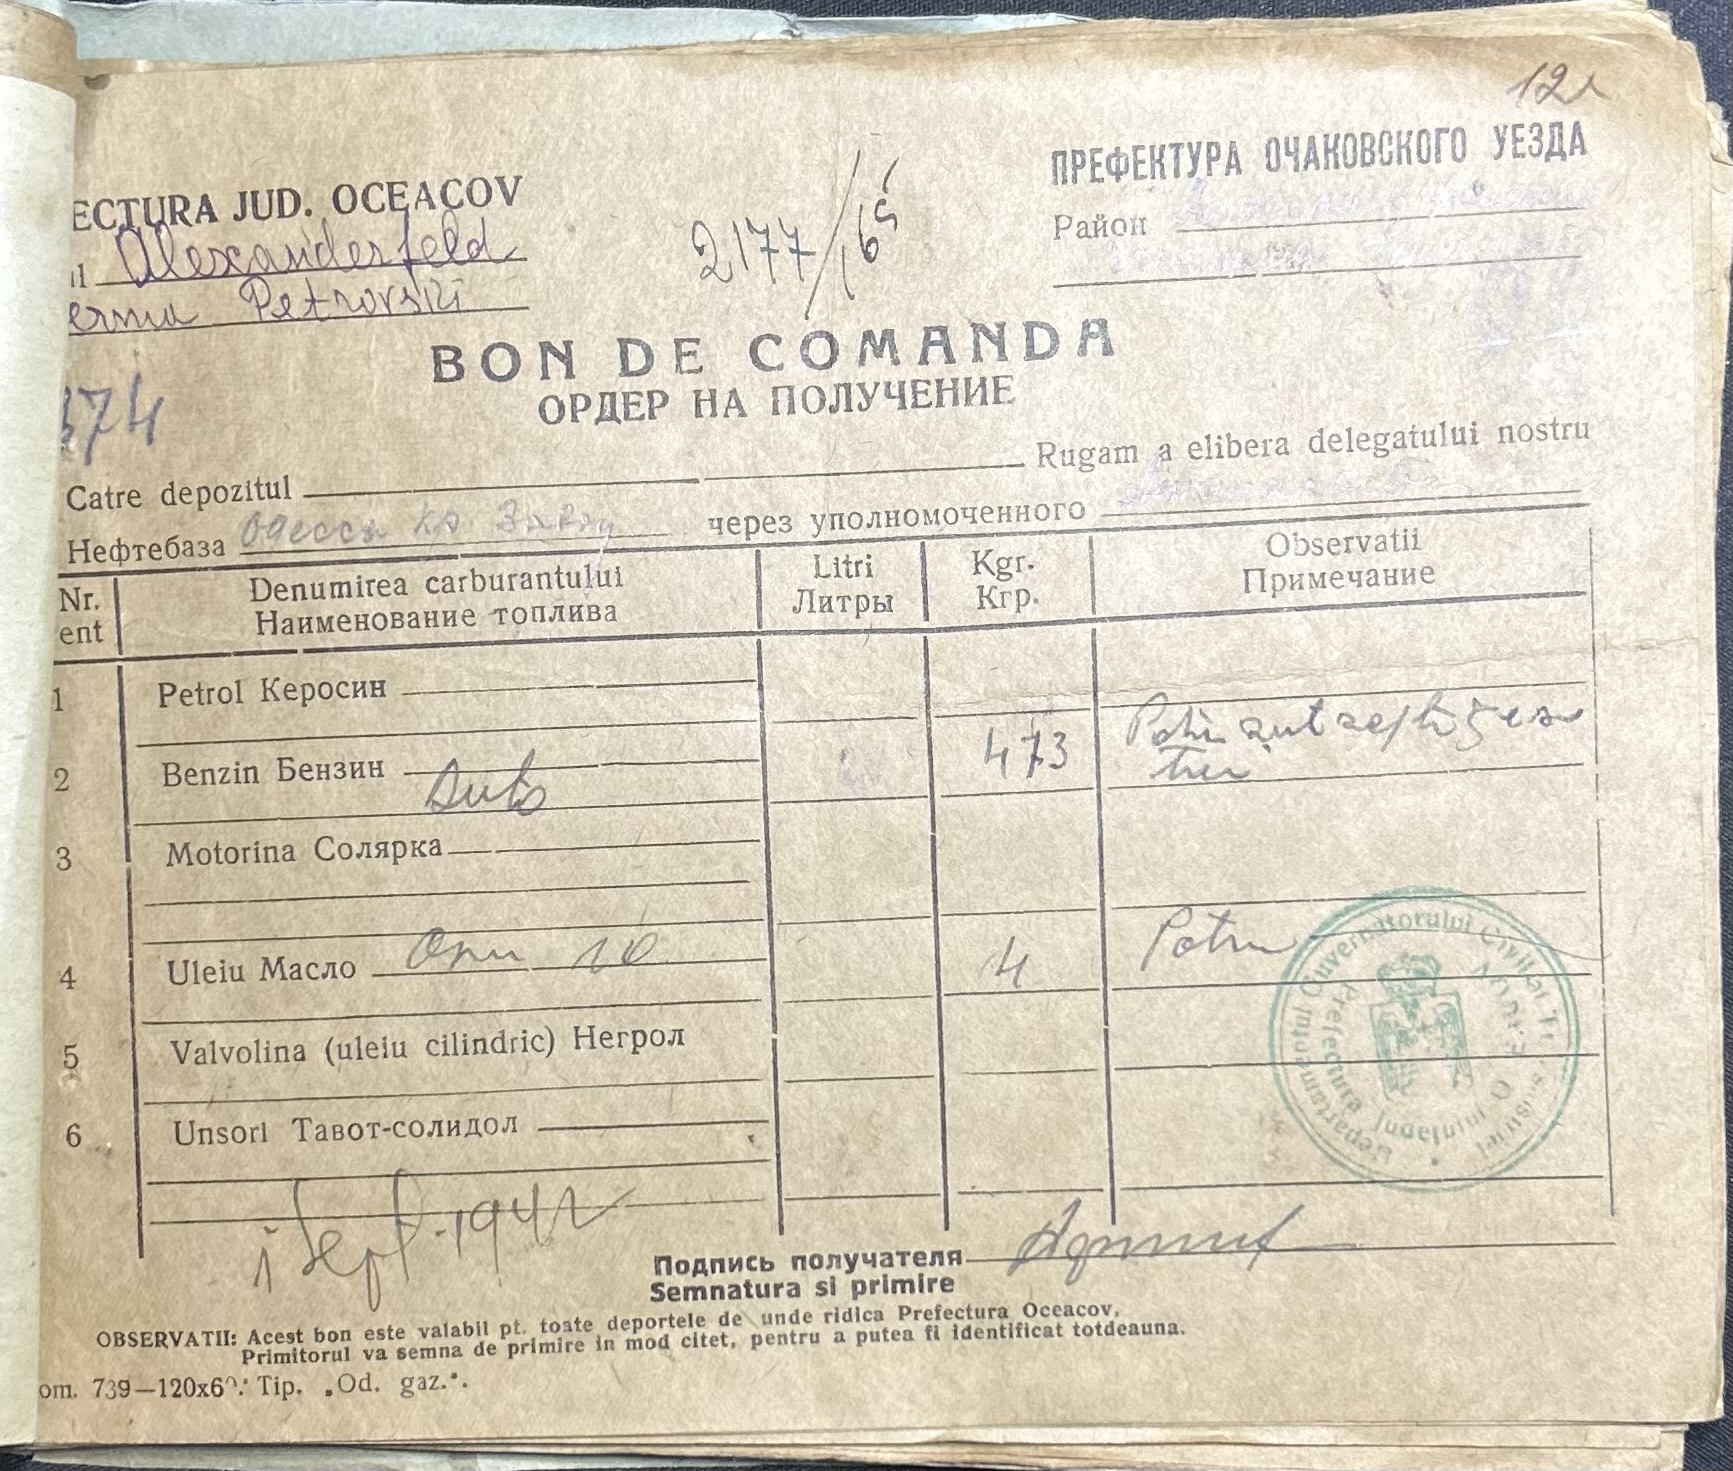 12
ECTURA JUD. OCEACOV
ПРЕФЕКТУРА ОЧАКОВСКОГО УЕЗДА
Alexanderfeld
2177/165
Район
erma Petrovski
BON DE COMANDA
ОРДЕР НА ПОЛУЧЕНИЕ
374
Catre depozitul Rugam a elibera delegatului nostru
Нефтебаза Одесса через уполномоченного
Nr. Denumirea carburantului Litri Kgr. Observatii
ent Наименование топлива Литры Кгр. Примечание
1 Petrol Керосин
2 Benzin Бензин Auto 473
3 Motorina Солярка
4 Uleiu Масло 10 4
5 Valvolina (uleiu cilindric) Негрол
6 Unsori Тавот-солидол
Departamentul Guvernatorului Civil al Transnistriei
Prefectura Județului
1 Sept. 1942
Подпись получателя
Semnatura si primire
OBSERVATII: Acest bon este valabil pt. toate deportele de unde ridica Prefectura Oceacov,
Primitorul va semna de primire in mod citet, pentru a putea fi identificat totdeauna.
om. 739—120x6 Tip. „Od. gaz.".